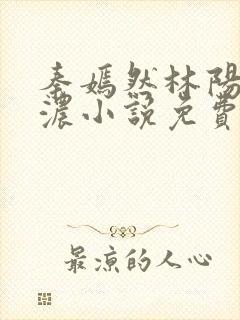 秦嫣然林陽
濃小說免費
最涼的人心